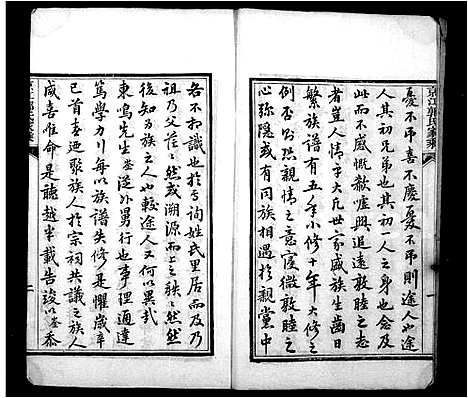 京江郭氏家乘
憂不吊喜不慶憂不吊則途人也途
人其初兄弟也其初一人之身也念及
此而不感慨欷歔興追遠敦睦之志
者豈人情乎大凡世家盛族生齒日
繁族譜有五年小修十年大修之
例否公然親情之意寖微敦睦之
心弥隱或有同族相於親黨中
各不相識也於焉詢姓氏里居而及乃
祖乃父茫茫然或溯源而上之昧昧然
後知為族之人也較途人又何以異哉
東鳴先生基從外男行也事理通
篤學力川每以族譜失修是懼歲辛
巳首春迺聚族人於宗祠共議之族人
咸喜唯命是聽越半載告竣以基忝